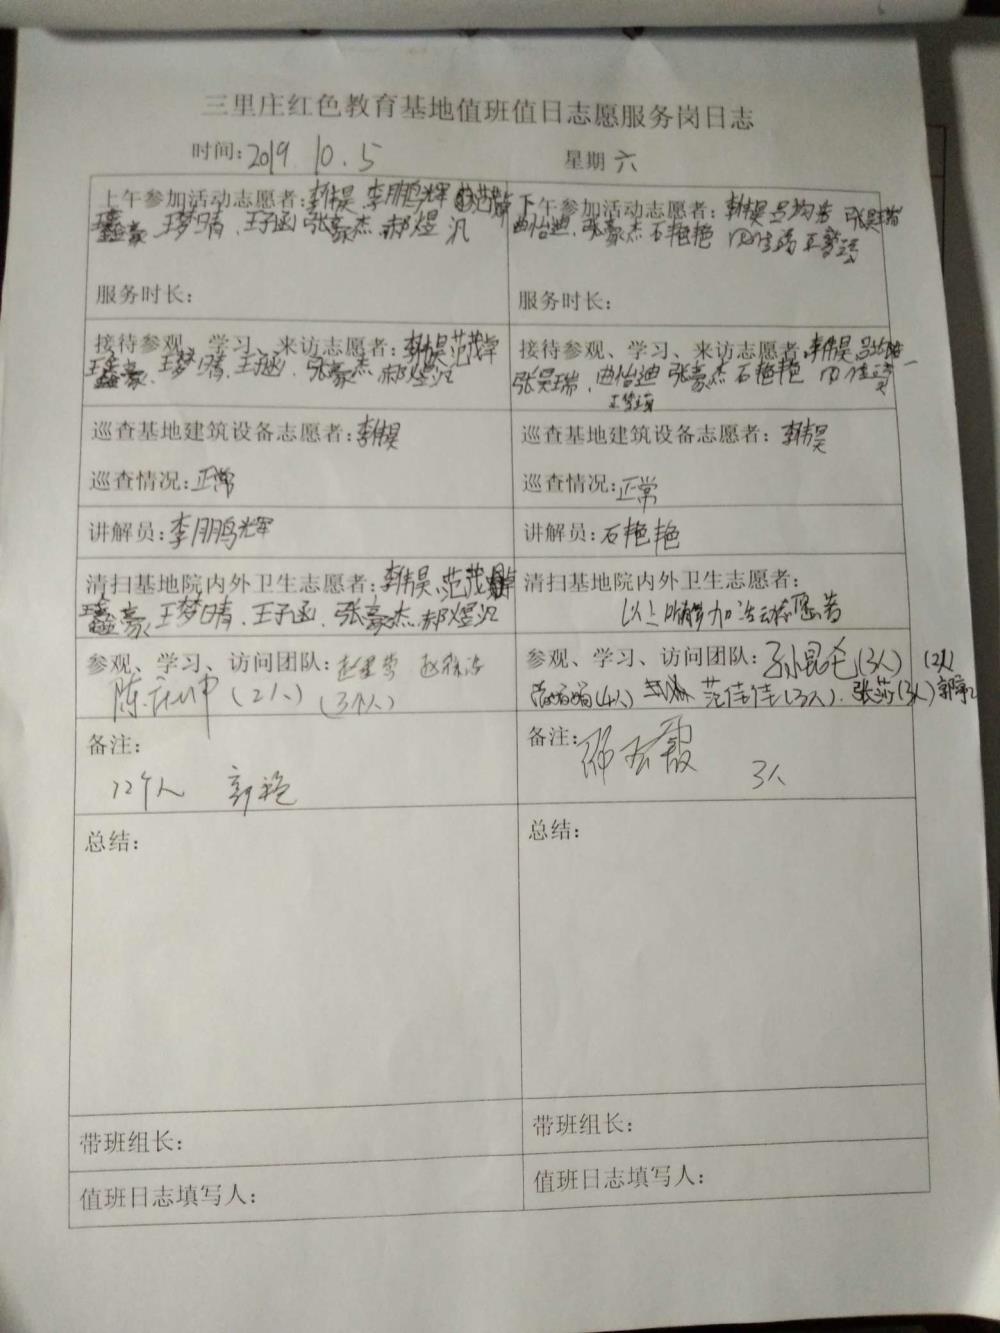 三里庄红色教育基地值班值日志愿服务岗日志
时间:2019.10.5 星期六
上午参加活动志愿者:李伟昊 李鹏辉
王鑫豪、王梦晴、王子函、张豪杰、郝煜汎
服务时长:
下午参加活动志愿者:李伟昊 张昊瑞
曲怡迪、张豪杰 石艳艳
服务时长:
接待参观、学习、来访志愿者:李伟昊、范茂卓
王鑫豪、王梦晴、王子函、张豪杰、郝煜汎
接待参观、学习、来访志愿者:李伟昊
张昊瑞、曲怡迪 张豪杰 石艳艳
巡查基地建筑设备志愿者:李伟昊
巡查情况:正常
巡查基地建筑设备志愿者:李伟昊
巡查情况:正常
讲解员:李鹏辉
讲解员:石艳艳
清扫基地院内外卫生志愿者:李伟昊、范茂卓
王鑫豪、王梦晴、王子函、张豪杰、郝煜汎
清扫基地院内外卫生志愿者:
以上所有参加活动志愿者
参观、学习、访问团队:
(2人) (3个人)
参观、学习、访问团队: (3人) (2人
(4人) 范佳佳(3人)、张莎(3人)
备注:
12个人 郭艳
备注:
3人
总结:
总结:
带班组长:
带班组长:
值班日志填写人:
值班日志填写人: